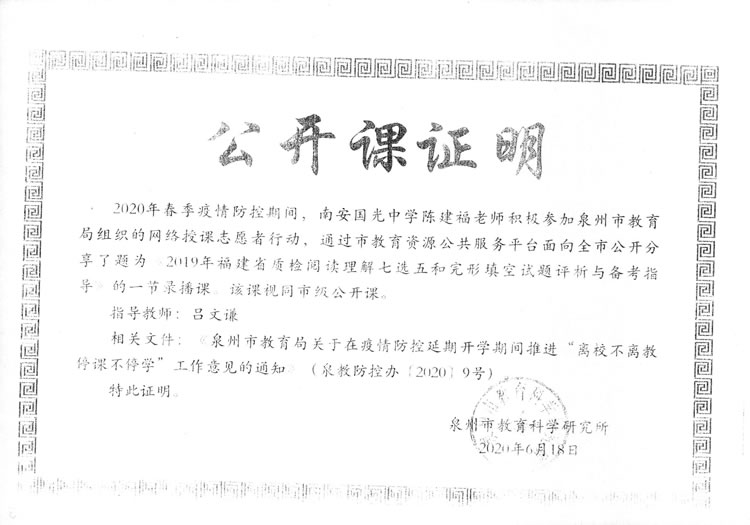 公开课证明
2020年春季疫情防控期间，南安国光中学陈建福老师积极参加泉州市教育
局组织的网络授课志愿者行动，通过市教育资源公共服务平台面向全市公开分
享了题为《2019年福建省质检阅读理解七选五和完形填空试题评析与备考指
导》的一节录播课。该课视同市级公开课。
指导教师：吕文谦
相关文件：《泉州市教育局关于在疫情防控延期开学期间推进“离校不离教
停课不停学”工作意见的通知》（泉教防控办〔2020〕9号）
特此证明。
泉州市教育科学研究所
2020年6月18日